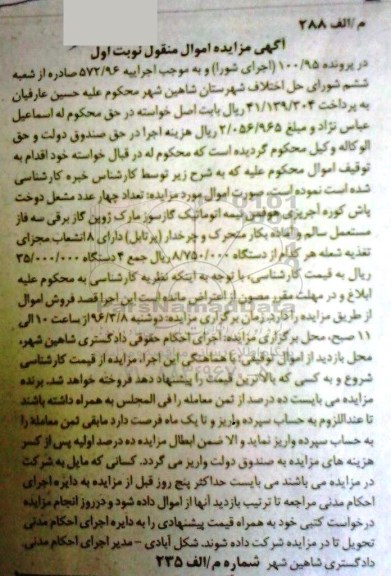 م/الف ۲۸۸
آگهی مزایده اموال منقول نوبت اول
در پرونده ۱۰۰/۹۵ (اجرای شورا) و به موجب اجراییه ۵۷۲/۹۶ صادره از شعبه
ششم شورای حل اختلاف شهرستان شاهین شهر محکوم علیه حسین عارفیان
به پرداخت ۴۱/۱۳۹/۳۰۴ ریال بابت اصل خواسته در حق محکوم له اسماعیل
عباس نژاد و مبلغ ۲/۰۵۶/۹۶۵ ریال هزینه اجرا در حق صندوق دولت و حق
الوکاله وکیل محکوم گردیده است که محکوم له در قبال خواسته خود اقدام به
توقیف اموال محکوم علیه که به شرح زیر توسط کارشناس خبره کارشناسی
شده است نموده است. صورت اموال مورد مزایده: تعداد چهار عدد مشعل دوخت
پاش کوره آجرپزی هوفمن نیمه اتوماتیک گازسوز مارک ژوپن گاز برقی سه فاز
مستعمل سالم و آماده بکار متحرک و چرخدار (پرتابل) دارای ۸ انشعاب مجزای
تغذیه شعله هر کدام از دستگاه ۸/۷۵۰/۰۰۰ ریال جمع ۴ دستگاه ۳۵/۰۰۰/۰۰۰
ریال به قیمت کارشناسی، با توجه به اینکه نظریه کارشناسی به محکوم علیه
ابلاغ و در مهلت مقرر مصون از اعتراض مانده است این اجرا قصد فروش اموال
از طریق مزایده را دارد. زمان برگزاری مزایده: دوشنبه ۹۶/۳/۸ از ساعت ۱۰ الی
۱۱ صبح، محل برگزاری مزایده: اجرای احکام حقوقی دادگستری شاهین شهر،
محل بازدید از اموال توقیفی: با هماهنگی این اجرا، مزایده از قیمت کارشناسی
شروع و به کسی که بالاترین قیمت را پیشنهاد دهد فروخته خواهد شد. برنده
مزایده می بایست ده درصد از ثمن معامله را فی المجلس به همراه داشته باشند
تا عنداللزوم به حساب سپرده واریز و تا یک ماه فرصت دارد مابقی ثمن معامله را
به حساب سپرده واریز نماید و الا ضمن ابطال مزایده ده درصد اولیه پس از کسر
هزینه های مزایده به صندوق دولت واریز می گردد. کسانی که مایل به شرکت
در مزایده می باشند می بایست حداکثر پنج روز قبل از مزایده به دایره اجرای
احکام مدنی مراجعه تا ترتیب بازدید آنها از اموال داده شود و در روز انجام مزایده
درخواست کتبی خود به همراه قیمت پیشنهادی را به دایره اجرای احکام مدنی
تحویل تا در مزایده شرکت داده شوند. شکل آبادی - مدیر اجرای احکام مدنی
دادگستری شاهین شهر شماره م/الف ۲۳۵